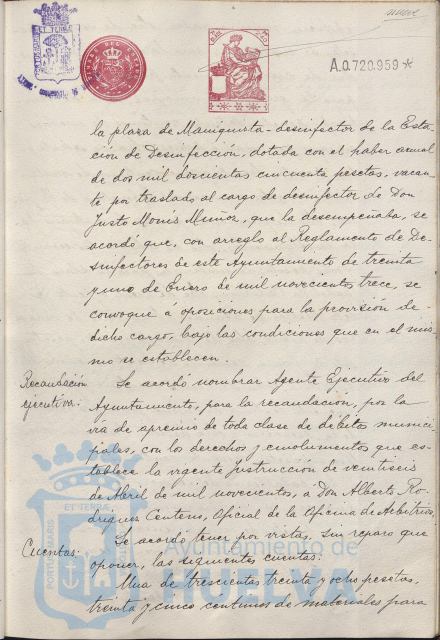 A.0.720.959*
la plaza de Maniquista-desinfector de la Esta-
ción de Desinfección, dotada con el haber anual
de dos mil doscientas cincuenta pesetas, vacan-
te por traslado al cargo de desinfector de Don
Justo Monís Muñoz, que la desempeñaba, se
acordó que, con arreglo al Reglamento de De-
sinfectores de este Ayuntamiento de treinta
y uno de Enero de mil novecientos trece, se
convoque a oposiciones para la provisión de
dicho cargo, bajo las condiciones que en el mis-
mo se establecen.
Recaudación
ejecutiva:
Se acordó nombrar Agente Ejecutivo del
Ayuntamiento, para la recaudación, por la
vía de apremio de toda clase de débitos munici-
pales, con los derechos y emolumentos que es-
tablece la vigente Instrucción de veintiseis
de Abril de mil novecientos, a Don Alberto Ro-
dríguez Centeno, Oficial de la Oficina de Arbitrios.
Cuentas:
Se acordó tener por vistas, sin reparo que
oponer, las siguientes cuentas:
Una de trescientas treinta y ocho pesetas,
treinta y cinco centimos de materiales para
PORTUS MARIS ET TERRAE
Ayuntamiento de
HUELVA